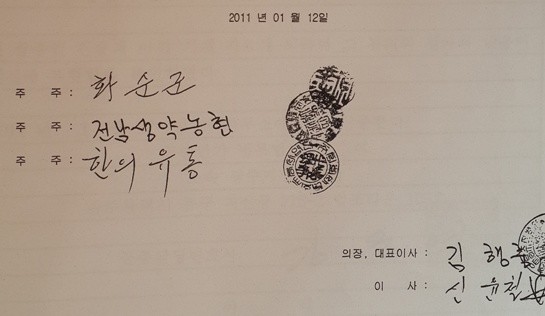 2011 년 01 월 12일
주 주 : 화순군
주 주 : 전남생약농협
주 주 : 한의유통
의장, 대표이사 : 김 행
이 사 : 신 윤철